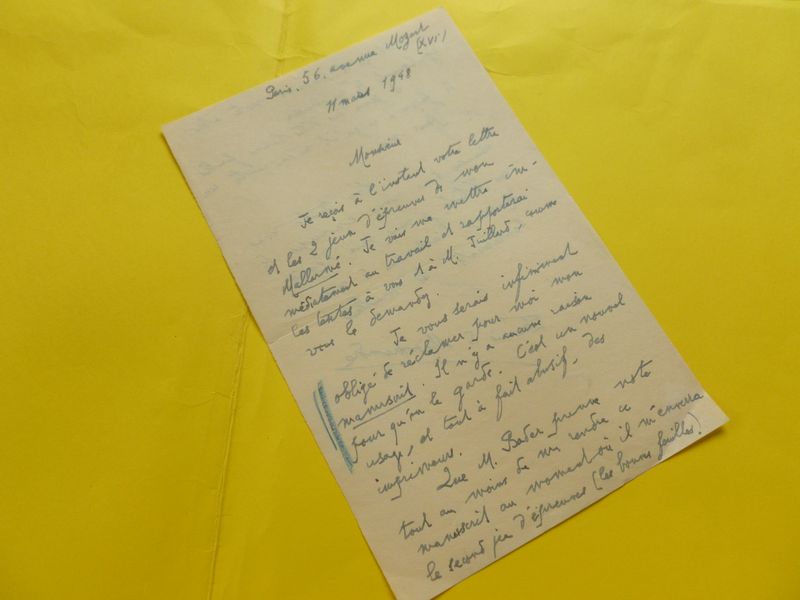 Paris. 56. avenue Mozart
(XVI)
11 mars 1948
Monsieur
Je reçois à l'instant votre lettre
et les 2 jeux d'épreuves de mon
Mallarmé. Je vais me mettre im-
médiatement au travail et rapporterai
les textes à vous et à M. Juillard, comme
vous le demandez.
Je vous serais infiniment
obligé de réclamer pour moi mon
manuscrit. Il n'y a aucune raison
pour qu'on le garde. C'est un nouvel
usage, et tout à fait abusif, des
imprimeurs.
Que M. Bader prenne note
tout au moins de me rendre ce
manuscrit au moment où il m'enverra
le second jeu d'épreuves (les bonnes feuilles)